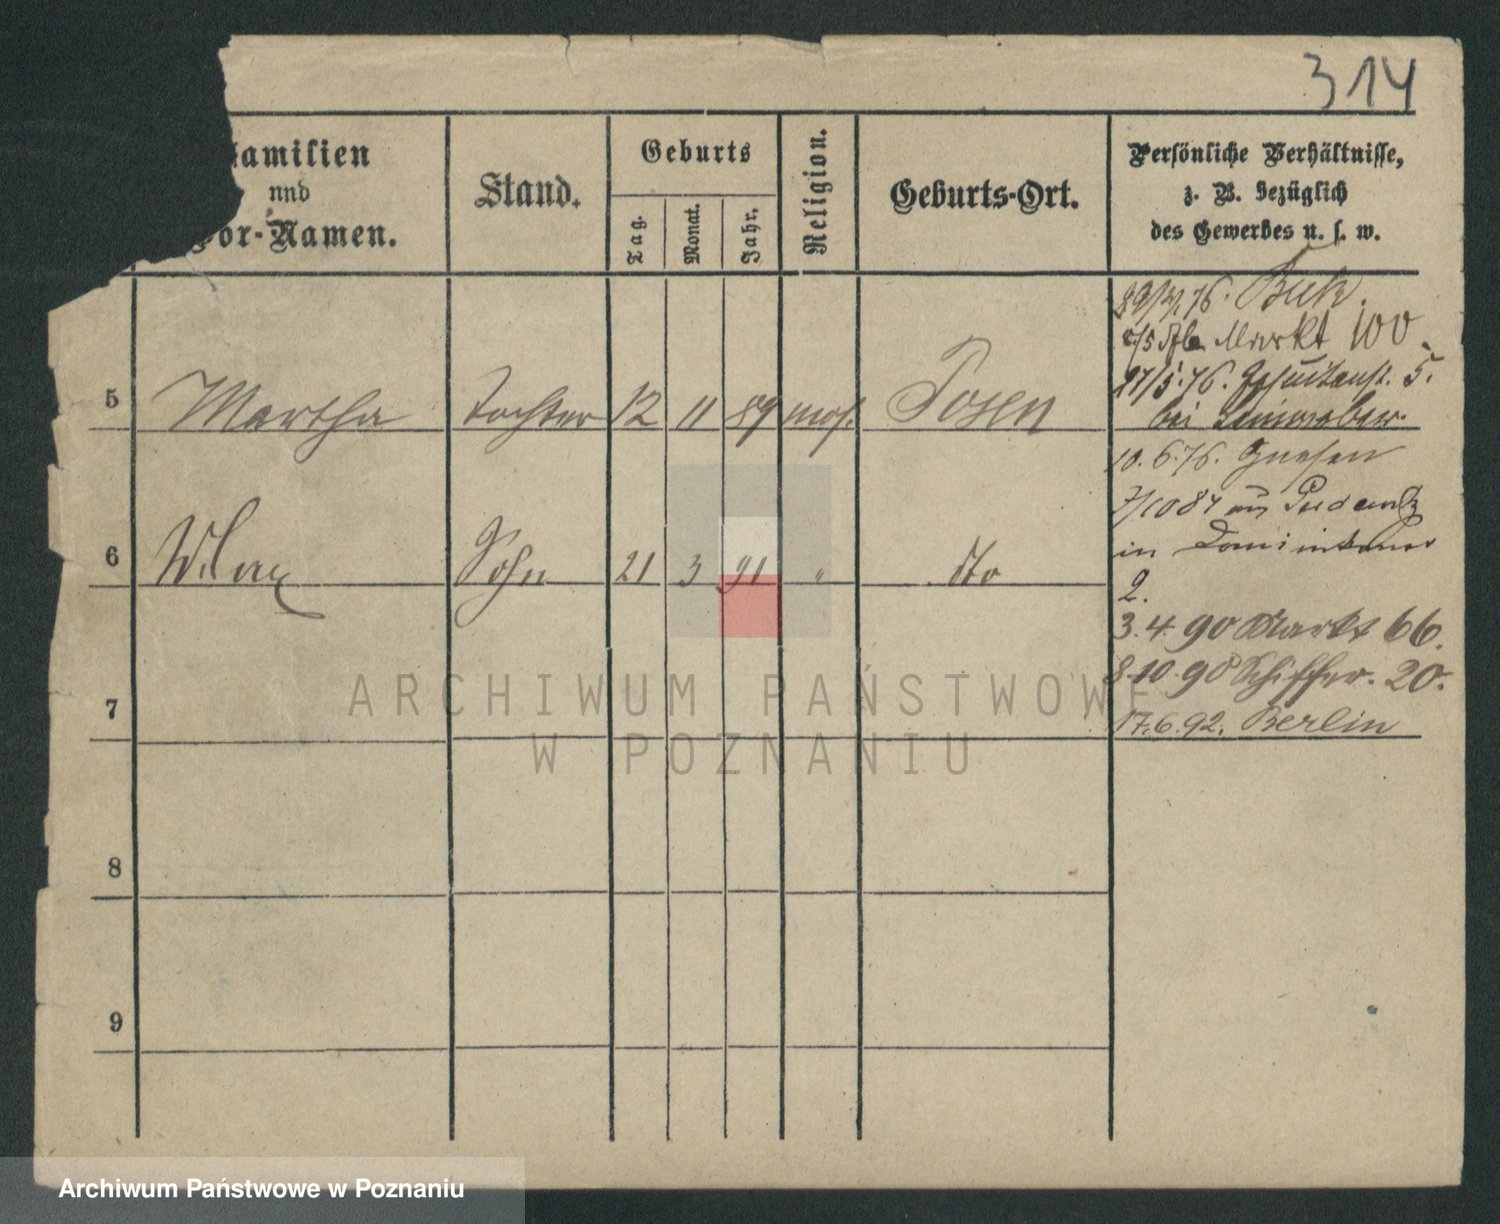 314
Familien
und
Vor-Namen.
Stand.
Geburts
Tag.
Monat.
Jahr.
Religion.
Geburts-Ort.
Persönliche Verhältnisse,
z. B. bezüglich
des Gewerbes u. s. w.
5 Martha Tochter 12 11 89 mos. Posen
6 Max Sohn 21 3 91 " dto
7
8
9
76. Buk.
Markt 100.
27/5.76. 5.
bei
10.6.76. Gnesen
7/10 84 aus Pudewitz
in
2.
3.4.90 Markt 66.
8.10.90 Schiffer. 20.
17.6.92. Berlin
ARCHIWUM PAŃSTWOWE
W POZNANIU
Archiwum Państwowe w Poznaniu